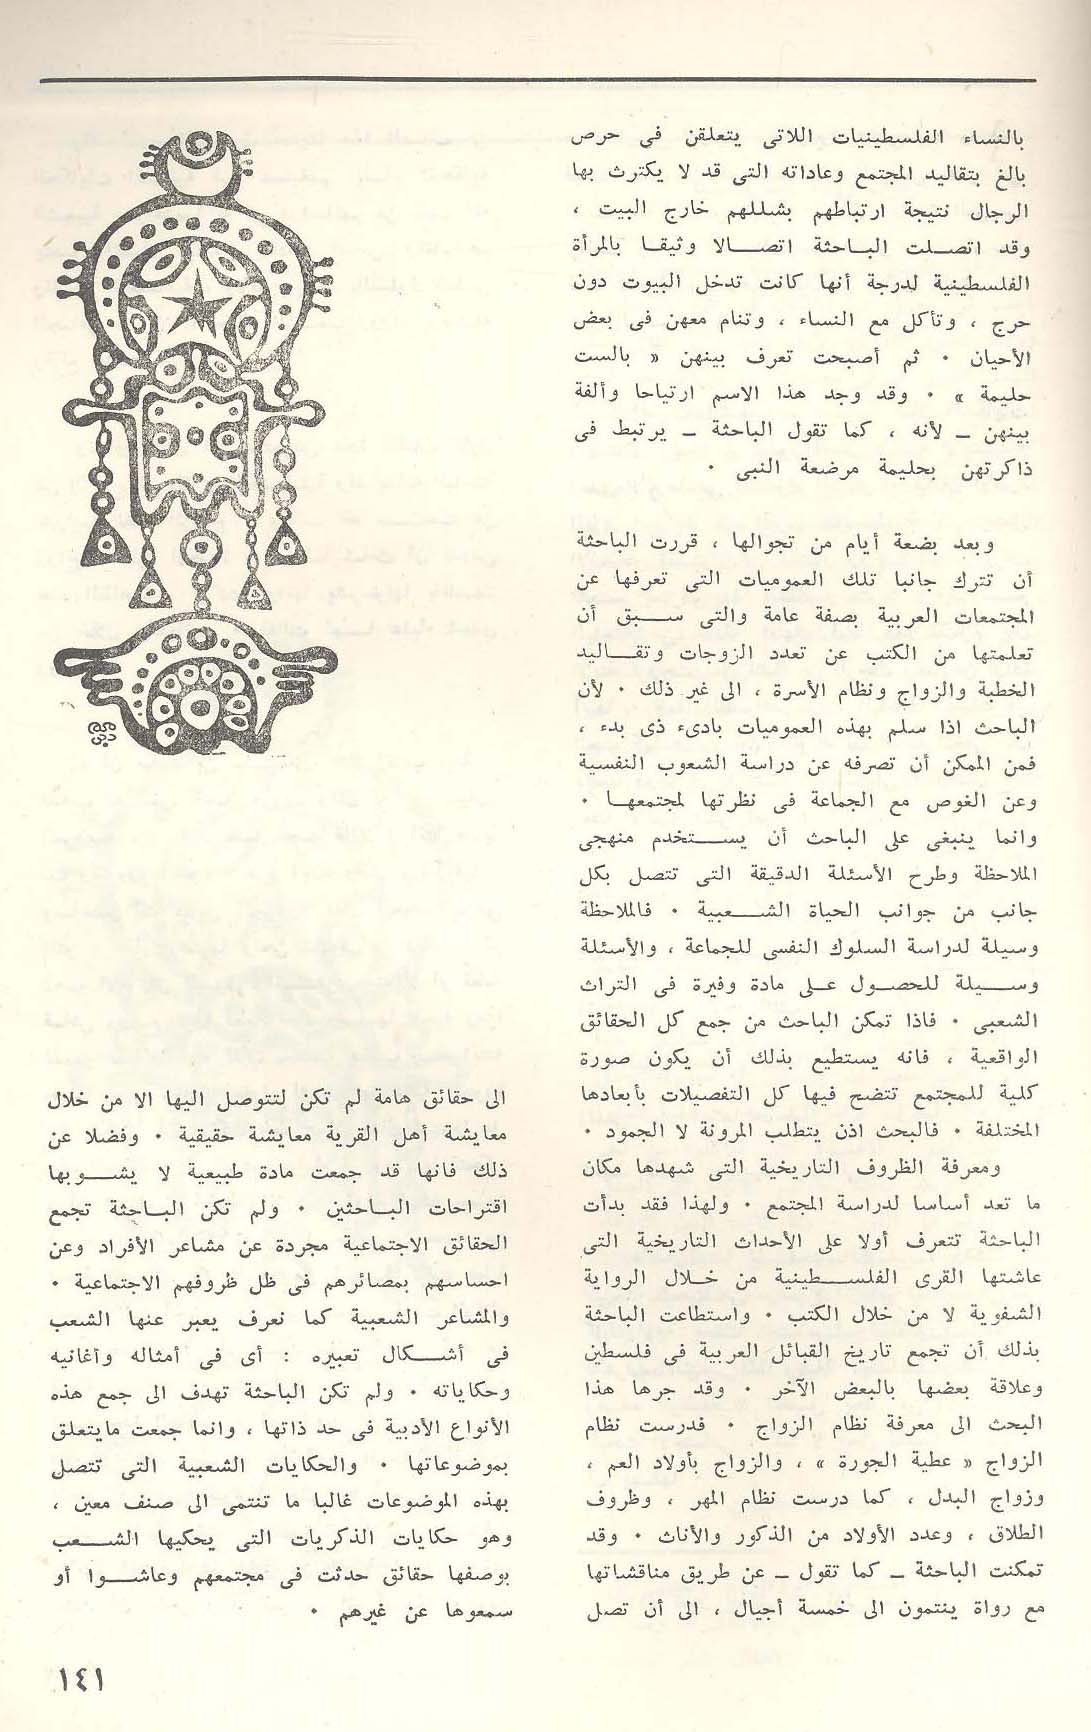 بالنساء الفلسطينيات اللاتى يتعلقن فى حرص
بالغ بتقاليد المجتمع وعاداته التى قد لا يكترث بها
الرجال نتيجة ارتباطهم بشللهم خارج البيت ،
وقد اتصلت الباحثة اتصالا وثيقا بالمرأة
الفلسطينية لدرجة أنها كانت تدخل البيوت دون
حرج ، وتأكل مع النساء ، وتنام معهن فى بعض
الأحيان ٠ ثم أصبحت تعرف بينهن « بالست
حليمة » ٠ وقد وجد هذا الاسم ارتياحا وألفة
بينهن – لأنه ، كما تقول الباحثة – يرتبط فى
ذاكرتهن بحليمة مرضعة النبى ٠
وبعد بضعة أيام من تجوالها ، قررت الباحثة
أن تترك جانبا تلك العموميات التى تعرفها عن
المجتمعات العربية بصفة عامة والتى سبق أن
تعلمتها من الكتب عن تعدد الزوجات وتقاليد
الخطبة والزواج ونظام الأسرة ، الى غير ذلك ٠ لأن
الباحث اذا سلم بهذه العموميات بادىء ذى بدء ،
فمن الممكن أن تصرفه عن دراسة الشعوب النفسية
وعن الغوص مع الجماعة فى نظرتها لمجتمعها ٠
وانما ينبغى على الباحث أن يستخدم منهجى
الملاحظة وطرح الأسئلة الدقيقة التى تتصل بكل
جانب من جوانب الحياة الشعبية ٠ فالملاحظة
وسيلة لدراسة السلوك النفسى للجماعة ، والأسئلة
وسيلة للحصول على مادة وفيرة فى التراث
الشعبى ٠ فاذا تمكن الباحث من جمع كل الحقائق
الواقعية ، فانه يستطيع بذلك أن يكون صورة
كلية للمجتمع تتضح فيها كل التفصيلات بأبعادها
المختلفة ٠ فالبحث اذن يتطلب المرونة لا الجمود ٠
ومعرفة الظروف التاريخية التى شهدها مكان
ما تعد أساسا لدراسة المجتمع ٠ ولهذا فقد بدأت
الباحثة تتعرف أولا على الأحداث التاريخية التى
عاشتها القرى الفلسطينية من خلال الرواية
الشفوية لا من خلال الكتب ٠ واستطاعت الباحثة
بذلك أن تجمع تاريخ القبائل العربية فى فلسطين
وعلاقة بعضها بالبعض الآخر ٠ وقد جرها هذا
البحث الى معرفة نظام الزواج ٠ فدرست نظام
الزواج « عطية الجورة » ، والزواج بأولاد العم ،
وزواج البدل ، كما درست نظام المهر ، وظروف
الطلاق ، وعدد الأولاد من الذكور والأناث ٠ وقد
تمكنت الباحثة – كما تقول – عن طريق مناقشاتها
مع رواة ينتمون الى خمسة أجيال ، الى أن تصل
الى حقائق هامة لم تكن لتتوصل اليها الا من خلال
معايشة أهل القرية معايشة حقيقية ٠ وفضلا عن
ذلك فانها قد جمعت مادة طبيعية لا يشوبها
اقتراحات الباحثين ٠ ولم تكن الباحثة تجمع
الحقائق الاجتماعية مجردة عن مشاعر الأفراد وعن
احساسهم بمصائرهم فى ظل ظروفهم الاجتماعية ٠
والمشاعر الشعبية كما نعرف يعبر عنها الشعب
فى أشكال تعبيره : أى فى أمثاله وأغانيه
وحكاياته ٠ ولم تكن الباحثة تهدف الى جمع هذه
الأنواع الأدبية فى حد ذاتها ، وانما جمعت مايتعلق
بموضوعاتها ٠ والحكايات الشعبية التى تتصل
بهذه الموضوعات غالبا ما تنتمى الى صنف معين ،
وهو حكايات الذكريات التى يحكيها الشعب
بوصفها حقائق حدثت فى مجتمعهم وعاشوا أو
سمعوها عن غيرهم ٠
١٤١